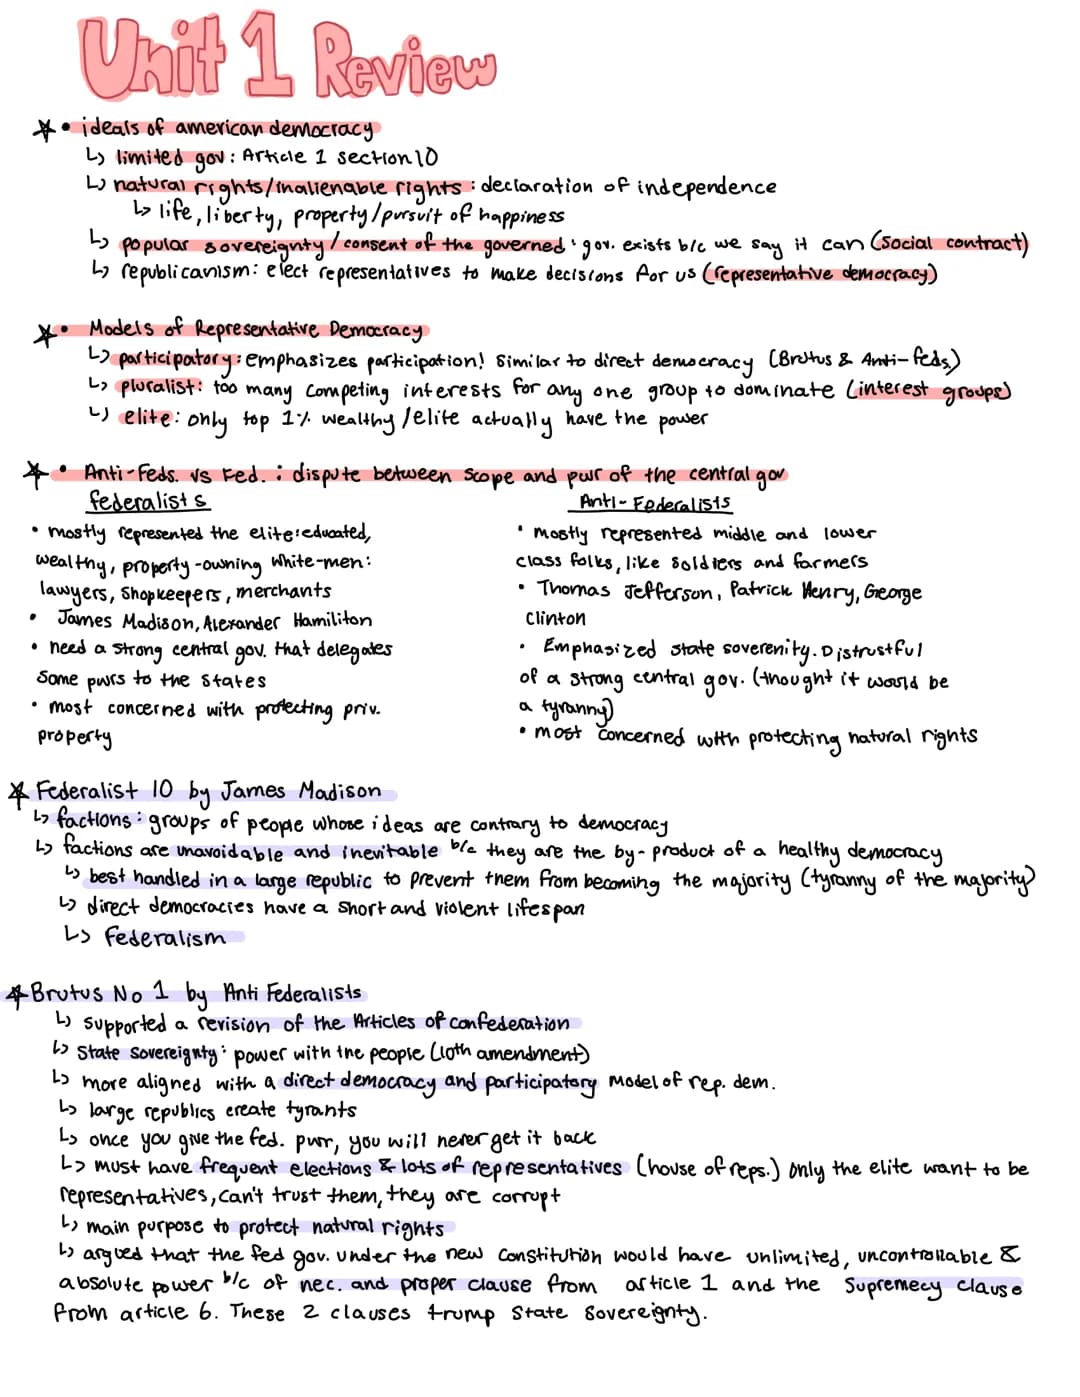 Unit 1 Review
• ideals of american democracy
↳ limited gov: Article 1 section 10
↳ natural rights/inalienable rights: declaration of independence
↳ life, liberty, property/pursuit of happiness
↳ popular sovereignty/consent of the governed: gov. exists b/c we say it can (social contract)
↳ republicanism: elect representatives to make decisions for us (representative democracy)
• Models of Representative Democracy
↳ participatory: emphasizes participation! Similar to direct democracy (Brutus & Anti-feds.)
↳ pluralist: too many competing interests for any one group to dominate (interest groups)
↳ elite: only top 1% wealthy/elite actually have the power
• Anti-Feds. vs Fed.: dispute between scope and pwr of the central gov
federalists
• mostly represented the elite: educated,
wealthy, property-owning white-men:
lawyers, shopkeepers, merchants
• James Madison, Alexander Hamiliton
• need a strong central gov. that delegates
some pwrs to the states
• most concerned with protecting priv.
property
Anti-Federalists
• mostly represented middle and lower
class folks, like soldiers and farmers
• Thomas Jefferson, Patrick Henry, George
Clinton
• Emphasized state soverenity. Distrustful
of a strong central gov. (thought it would be
a tyranny)
• most concerned with protecting natural rights
Federalist 10 by James Madison
↳ factions: groups of people whose ideas are contrary to democracy
↳ factions are unavoidable and inevitable b/c they are the by-product of a healthy democracy
↳ best handled in a large republic to prevent them from becoming the majority (tyranny of the majority)
↳ direct democracies have a short and violent lifespan
↳ Federalism
Brutus No 1 by Anti Federalists
↳ supported a revision of the Articles of confederation
↳ State sovereignty: power with the people (10th amendment)
↳ more aligned with a direct democracy and participatory model of rep. dem.
↳ large republics create tyrants
↳ once you give the fed. pwr, you will never get it back
↳ must have frequent elections & lots of representatives (house of reps.) only the elite want to be
representatives, can't trust them, they are corrupt
↳ main purpose to protect natural rights
↳ argued that the fed gov. under the new constitution would have unlimited, uncontrollable &
absolute power b/c of nec. and proper clause from article 1 and the Supremecy clause
from article 6. These 2 clauses trump State Sovereignty.